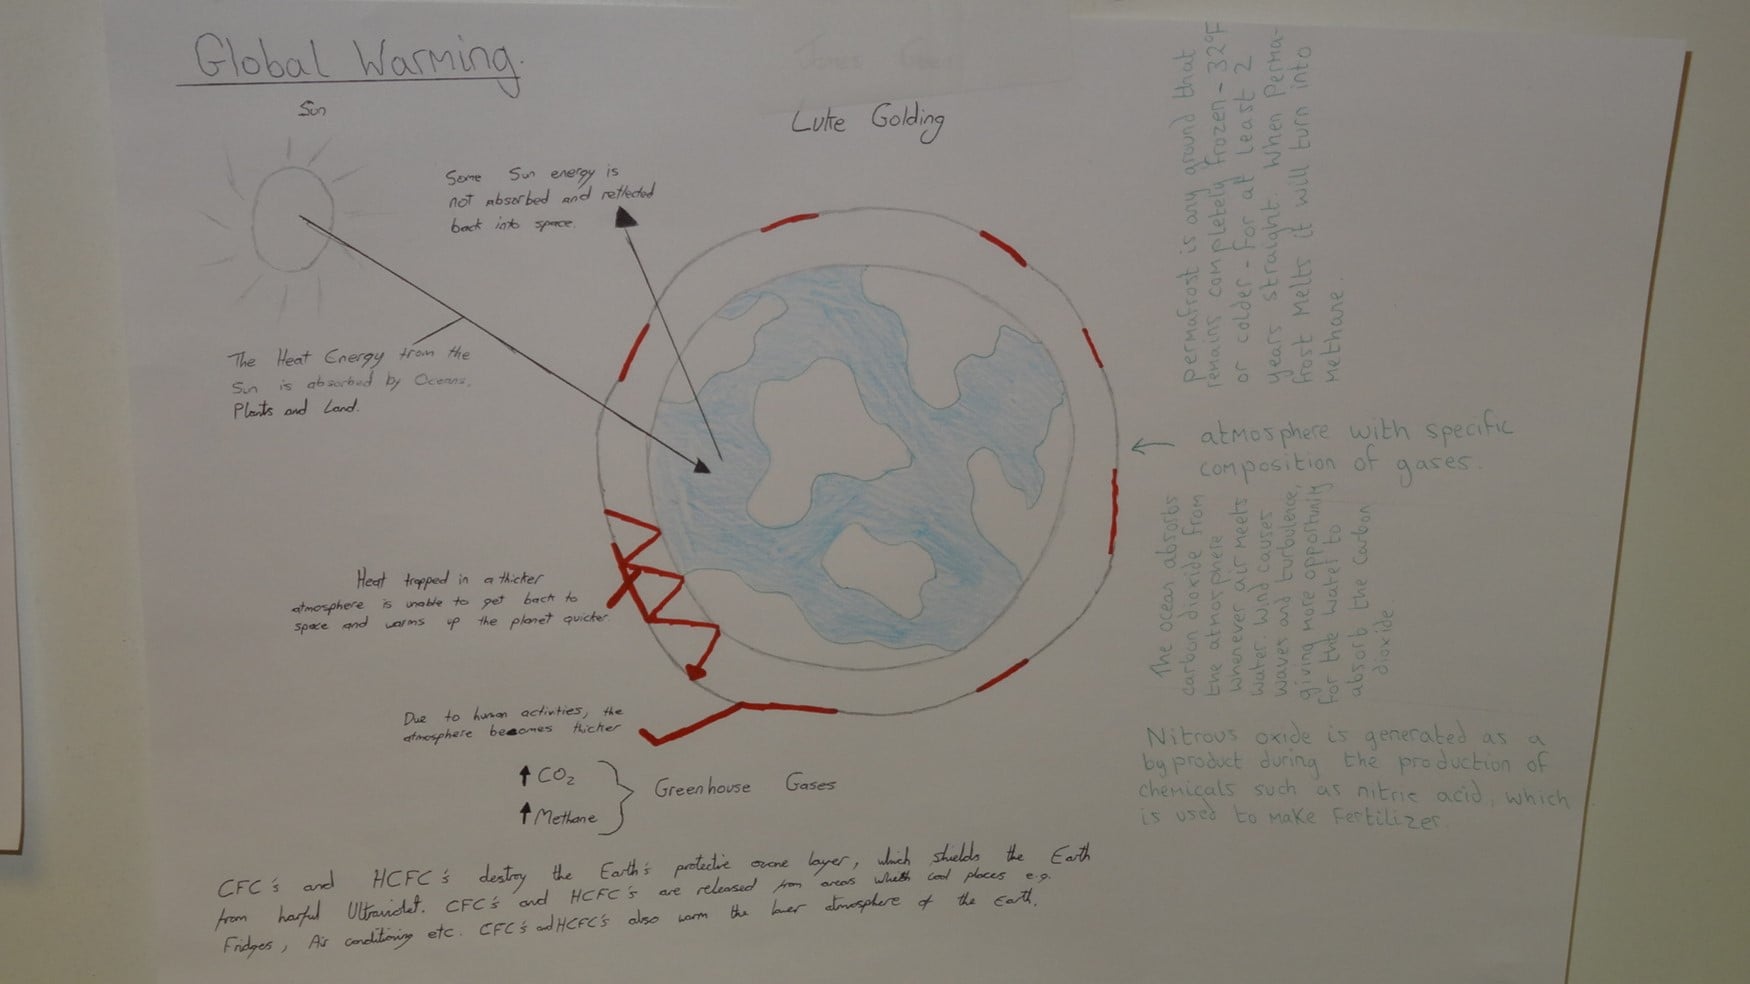 Global Warming.
Sun
Luke Golding
Some Sun energy is
not absorbed and reflected
back into space.
The Heat Energy from the
Sun is absorbed by Oceans,
Plants and Land.
Heat trapped in a thicker
atmosphere is unable to get back to
space and warms up the planet quicker.
Due to human activities, the
atmosphere becomes thicker
↑ CO₂
↑ Methane
Greenhouse Gases
CFC's and HCFC's destroy the Earth's protective ozone layer, which shields the Earth
from harful Ultraviolet. CFC's and HCFC's are released from areas which cool places e.g.
Fridges, Air conditioning etc. CFC's and HCFC's also warm the lower atmosphere of the Earth.
permafrost is any ground that
remains completely frozen - 32°F
or colder - for at least 2
years straight. When perma-
frost Melts it will turn into
Methane.
← atmosphere with specific
composition of gases.
The ocean absorbs
carbon dioxide from
the atmosphere
whenever air meets
water. Wind causes
waves and turbulence,
giving more opportunity
for the water to
absorb the carbon
dioxide.
Nitrous oxide is generated as a
byproduct during the production of
chemicals such as nitric acid, which
is used to make Fertilizer.